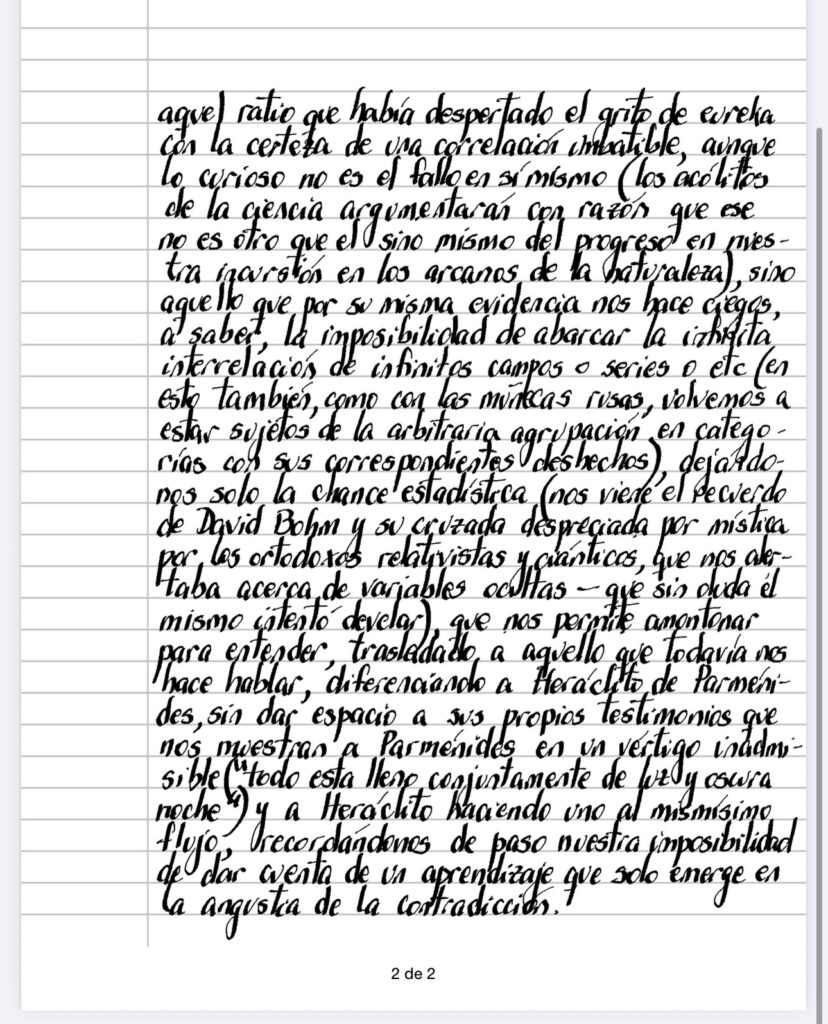 aquel ratio que había despertado el grito de eureka
con la certeza de una correlación imbatible, aunque
lo curioso no es el fallo en sí mismo (los acólitos
de la ciencia argumentarán con razón que ese
no es otro que el sino mismo del progreso en nues-
tra incursión en los arcanos de la naturaleza), sino
aquello que por su misma evidencia nos hace ciegos,
a saber, la imposibilidad de abarcar la infinita
interrelación de infinitos campos o series o etc (en
esto también, como con las muñecas rusas, volvemos a
estar sujetos de la arbitraria agrupación en catego-
rías con sus correspondientes deshechos), dejándo-
nos solo la chance estadística (nos viene el recuerdo
de David Bohm y su cruzada despreciada por mística
por los ortodoxos relativistas y cuánticos, que nos aler-
taba acerca de variables ocultas - que sin duda él
mismo intentó develar), que nos permite amontonar
para entender, trasladado a aquello que todavía nos
hace hablar, diferenciando a Heráclito de Parméni-
des, sin dar espacio a sus propios testimonios que
nos muestran a Parménides en un vértigo inadmi-
sible ("todo esta lleno conjuntamente de luz y oscura
noche") y a Heráclito haciendo uno al mismísimo
flujo, recordándonos de paso nuestra imposibilidad
de dar cuenta de un aprendizaje que solo emerge en
la angustia de la contradicción.
2 de 2